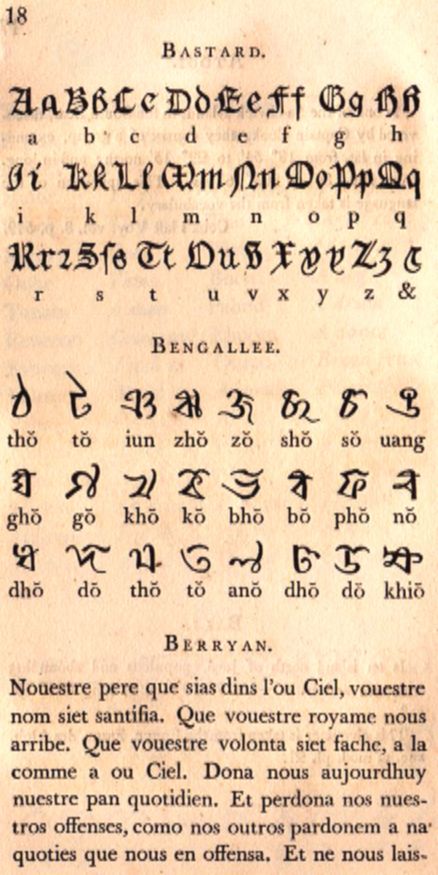 18
BASTARD.
Aa Bb Cc Dd Ee Ff Gg Hh
a b c d e f g h
Ii Kk Ll Mm Nn Oo Pp Qq
i k l m n o p q
Rrꝛ Sſs Tt Uu v Xx y Zz &
r s t u v x y z &
BENGALLEE.
thŏ tŏ iun zhŏ zŏ shŏ sŏ uang
ghŏ gŏ khŏ kŏ bhŏ bŏ phŏ nŏ
dhŏ dŏ thŏ tŏ anŏ dhŏ dŏ khiŏ
BERRYAN.
Nouestre pere que sias dins l'ou Ciel, vouestre
nom siet santifia. Que vouestre royame nous
arribe. Que vouestre volonta siet fache, a la
comme a ou Ciel. Dona nous aujourdhuy
nuestre pan quotidien. Et perdona nos nues-
tros offenses, como nos outros pardonem a na
quoties que nous en offensa. Et ne nous lais-